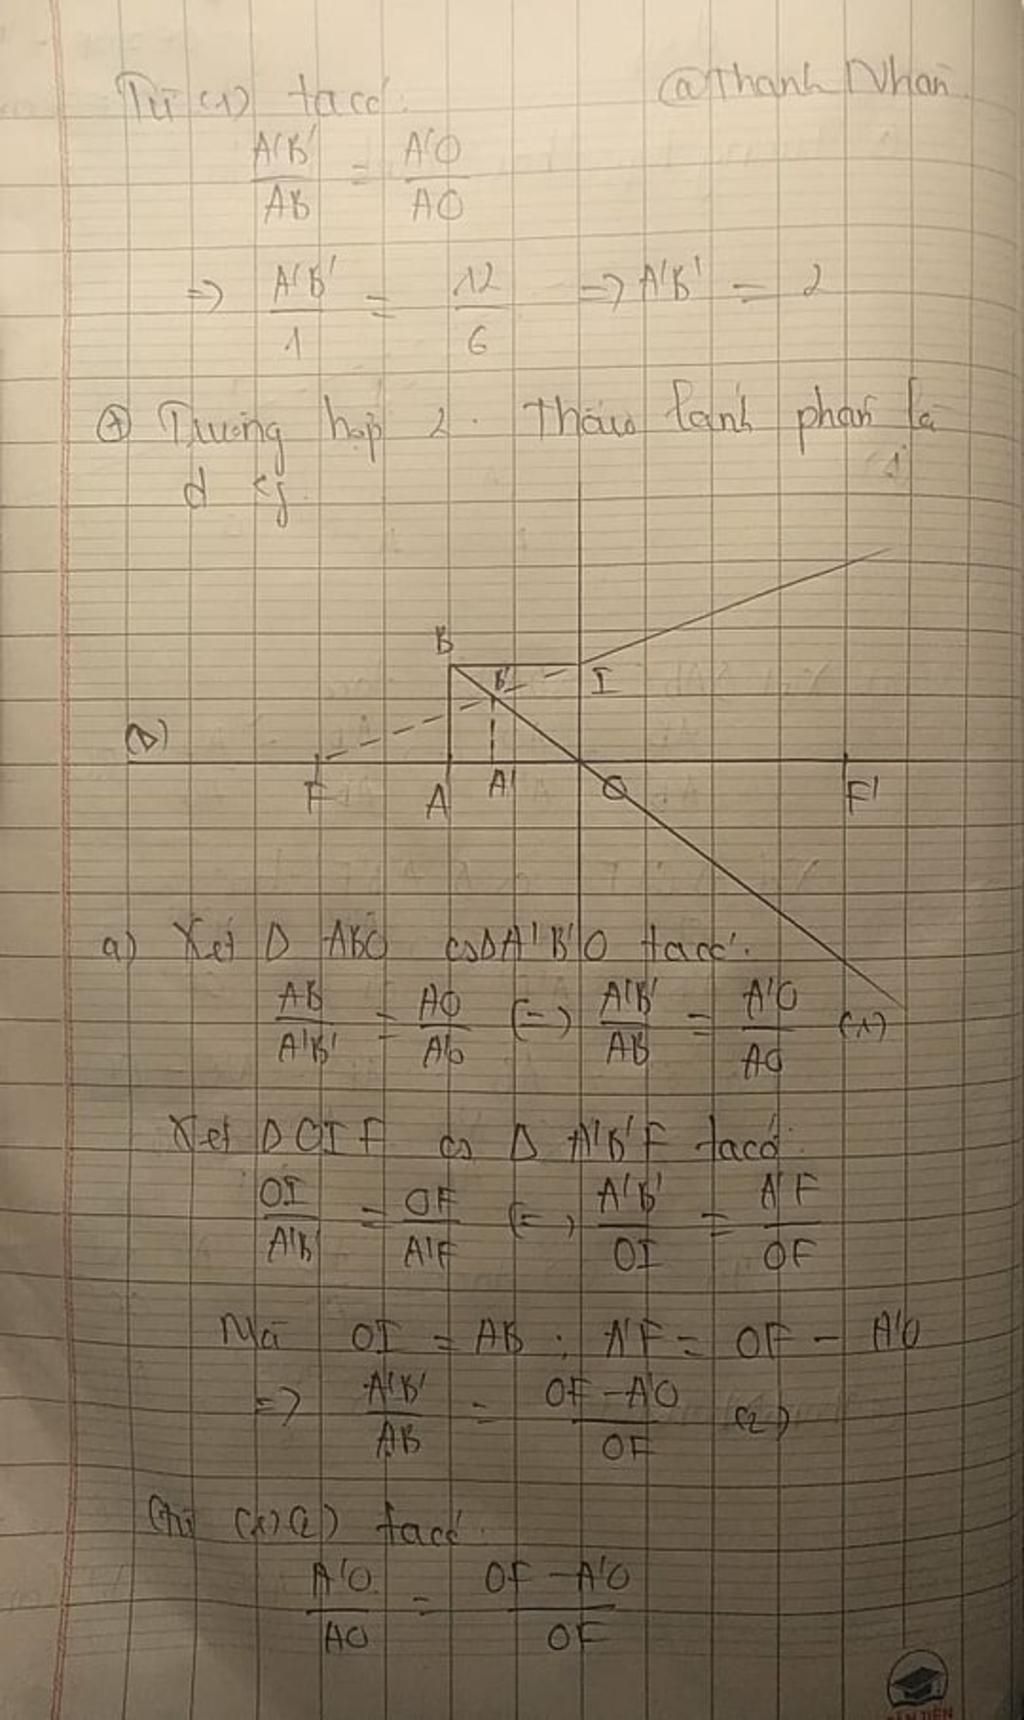 Từ (1) ta có: @Thanh Nhàn
A'B'/AB = A'O/AO
=> A'B'/1 = 12/6 => A'B' = 2
⊕ Trường hợp 2. Thấu kính phân kì
d < f
B
B'
I
(Δ)
F
A
A'
O
F'
a) Xét Δ ABO ∽ Δ A'B'O ta có:
AB/A'B' = AO/A'O (=) A'B'/AB = A'O/AO (1)
Xét Δ OIF ∽ Δ A'B'F ta có:
OI/A'B' = OF/A'F (=) A'B'/OI = A'F/OF
Mà OI = AB ; A'F = OF - A'O
=> A'B'/AB = OF - A'O/OF (2)
Từ (1) (2) ta có:
A'O/AO = OF - A'O/OF